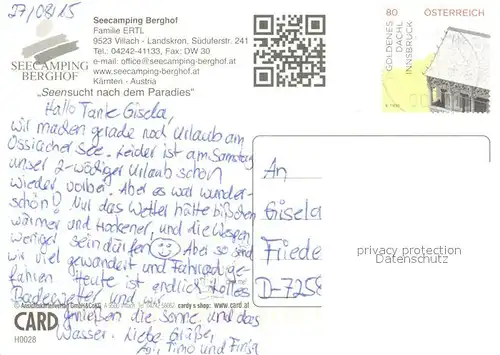 27/08/15
Seecamping Berghof
Familie ERTL
9523 Villach - Landskron, Süduferstr. 241
Tel.: 04242-41133, Fax: DW 30
e-mail: office@seecamping-berghof.at
www.seecamping-berghof.at
Kärnten - Austria
SEECAMPING
BERGHOF
„Seensucht nach dem Paradies"
80 ÖSTERREICH
GOLDENES
DACHL
INNSBRUCK
Hallo Tante Gisela,
wir machen gerade noch Urlaub am
Ossiacher See. Leider ist am Samstag
unser 2-wöchiger Urlaub schon
wieder vorbei. Aber es war wunder-
schön! Nur das Wetter hätte bißchen
wärmer und trockener, und die Wespen
weniger sein dürfen ☺ Aber so sind
wir viel gewandert und Fahrrad ge-
fahren. Heute ist endlich tolles
Badewetter und
genießen die Sonne und das
Wasser. Liebe Grüße,
Timo und
An
Gisela
Friede
D-7258
privacy protection
Datenschutz
CARD
H0028
cardy's shop: www.card.at